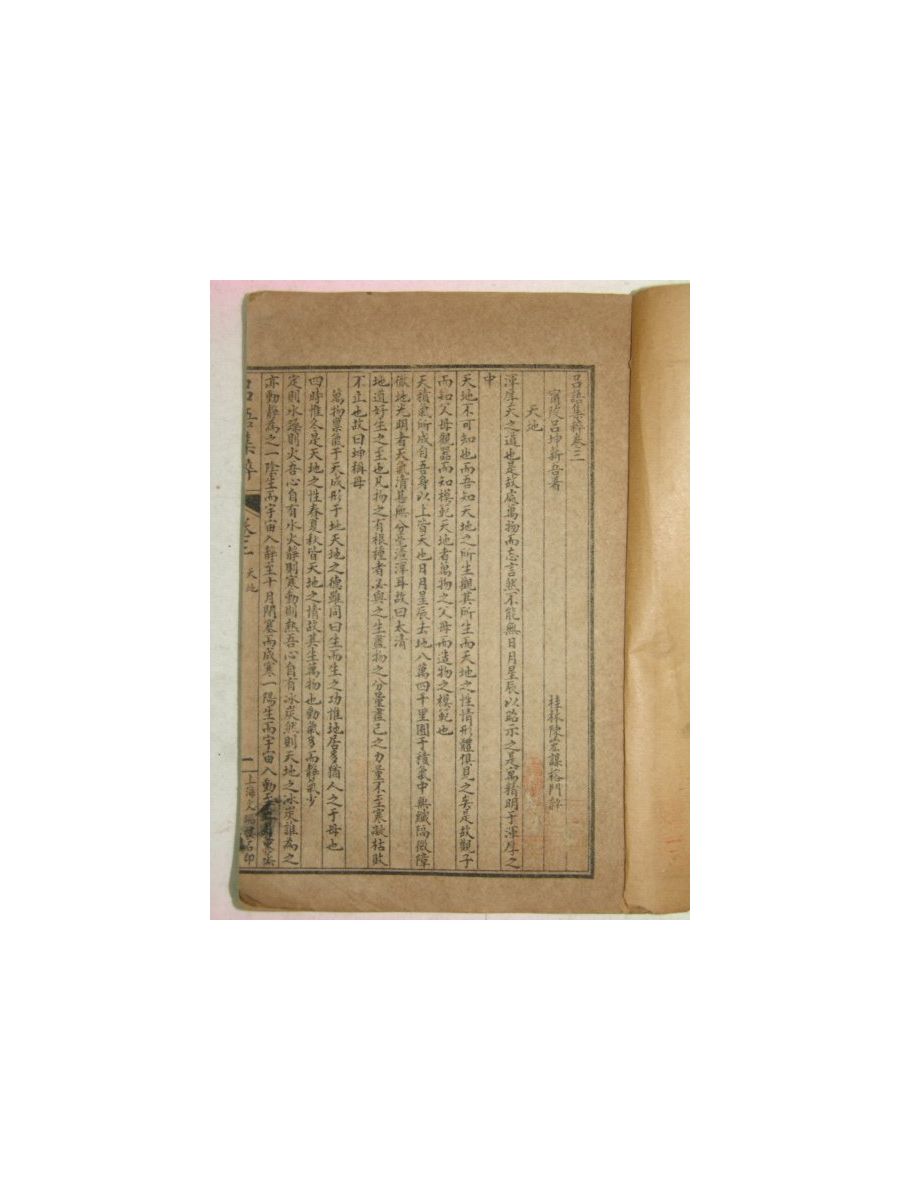 呂語集粹卷三
甯陵呂坤新吾著 桂林陳宏謀榕門評
天地
渾厚天之道也是故處萬物而忘言然不能無日月星辰以昭示之是寓精明于渾厚之
中
天地不可知也而吾知天地之所生觀其所生而天地之性情形體俱見之矣是故觀子
而知父母觀器而知模範天地者萬物之父母而造物之模範也
天積氣所成自吾身以上皆天也日月星辰去地八萬四千里囿于積氣中無纖隔微障
徹地光明者天氣清甚無分毫渣滓耳故曰太清
地道好生之至也凡物之有根種者必與之生盡物之分量盡己之力量不至寒凝枯敗
不止也故曰坤稱母
萬物稟氣于天成形于地天地之德雖同曰生而生之功惟地居多猶人之于母也
四時惟冬是天地之性春夏秋皆天地之情故其生萬物也動氣多而靜氣少
定則水躁則火吾心自有水火靜則寒動則熱吾心自有冰炭然則天地之冰炭誰為之
亦動靜為之一陰生而宇宙入靜至十月閉塞而成寒一陽生而宇宙入動
呂語集粹 卷三 天地 一 上海文瑞樓石印